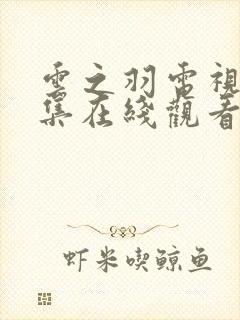 雲之羽電視
集在綫觀看
虾米喫鯨鱼